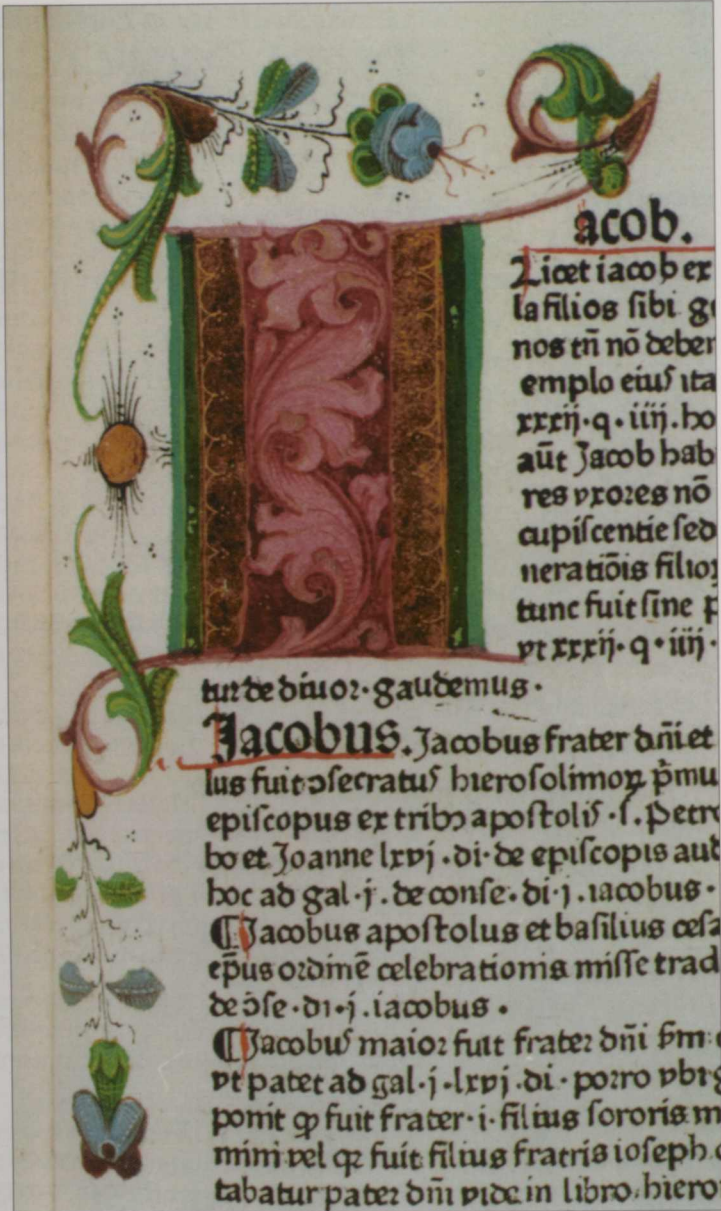 acob.
Licet iacob ex
la filios sibi g
nos tn̄ nō deber
emplo eiuſ ita
xxxij·q·iiij·ho
aūt Jacob hab
res vxores nō
cupiſcentie ſed
neratiōis filioꝝ
tunc fuit ſine p
vt xxxij·q·iiij·
tur de diuor·gaudemus·
Jacobus. Jacobus frater dn̄i et
lus fuit ↄſecratuſ hieroſolimoꝝ p̄mu
epiſcopus ex tribꝫ apoſtoliſ·ſ. Petr
bo et Joanne lxvj·di·de epiſcopis aud
hoc ad gal·j·de conſe·di·j·iacobus·
¶ Jacobus apoſtolus et baſilius ceſa
ep̄us ordinē celebrationis miſſe trad
de ↄ̄ſe·di·j·iacobus·
¶ Jacobuſ maior fuit frater dn̄i ẜm
vt patet ad gal·j·lxvj·di·porro vbi g
ponit ꝙ fuit frater·i·filius ſororis m
mini vel qꝛ fuit filius fratris ioſeph
tabatur pater dn̄i vide in libro·hiero